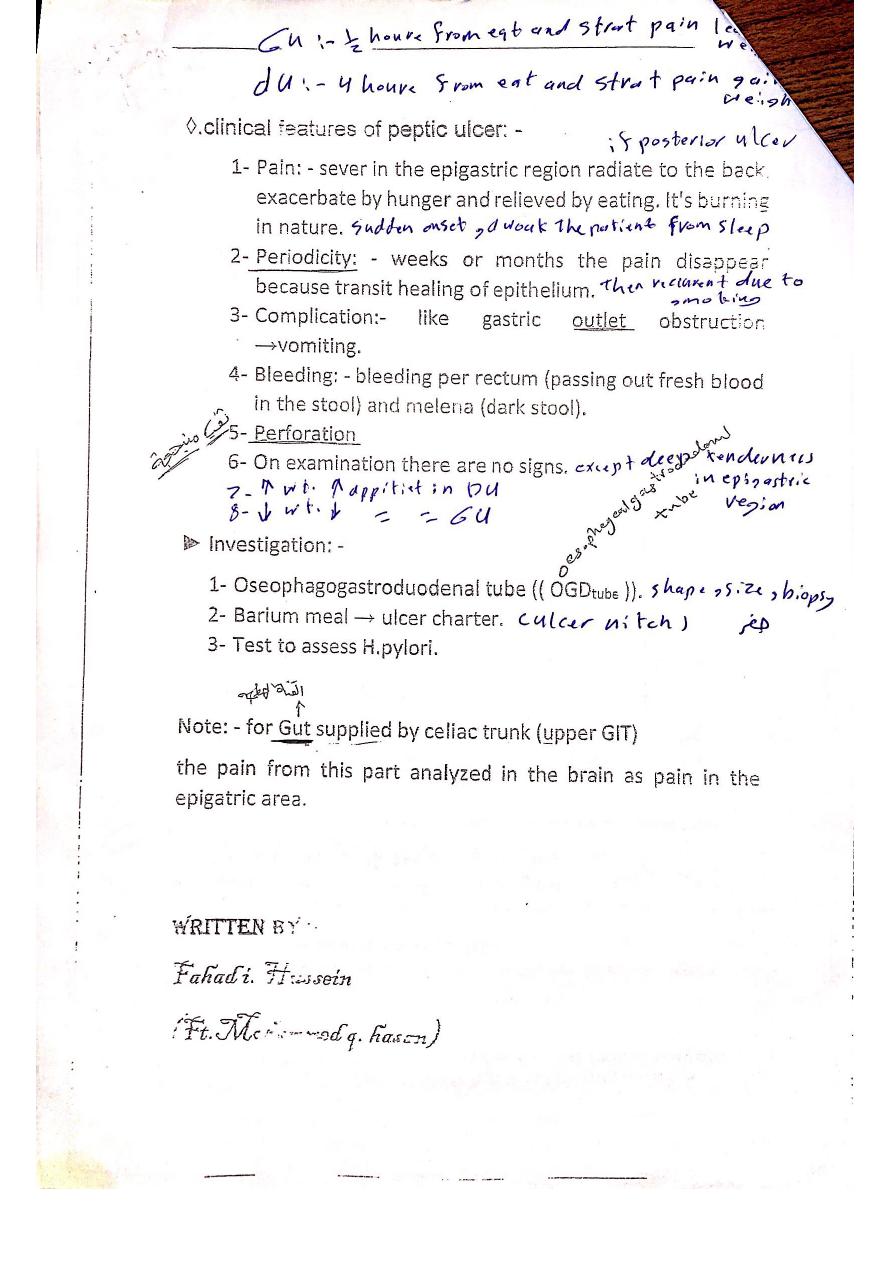 GU :- ½ houre from eat and strat pain
dU :- 4 houre from eat and strat pain
◊.clinical features of peptic ulcer: -
if posterior ulcer
1- Pain: - sever in the epigastric region radiate to the back
exacerbate by hunger and relieved by eating. It's burning
in nature. sudden onset the patient from sleep
2- Periodicity: - weeks or months the pain disappear
because transit healing of epithelium. then recurrent due to
smoking
3- Complication:- like gastric outlet obstruction
→vomiting.
4- Bleeding: - bleeding per rectum (passing out fresh blood
in the stool) and melena (dark stool).
5- Perforation
6- On examination there are no signs. except deep tenderness
in epigastric
region
7- ↑ wt. ↑ appitiet in DU
8- ↓ wt. ↓ = = GU
tube
➢ Investigation: -
1- Oseophagogastroduodenal tube (( OGDtube )). shape, size, biopsy
2- Barium meal → ulcer charter. (ulcer nitch)
3- Test to assess H.pylori.
↑
Note: - for Gut supplied by celiac trunk (upper GIT)
the pain from this part analyzed in the brain as pain in the
epigatric area.
WRITTEN BY
Fahadi. Hussein
(Ft. q. hasen)